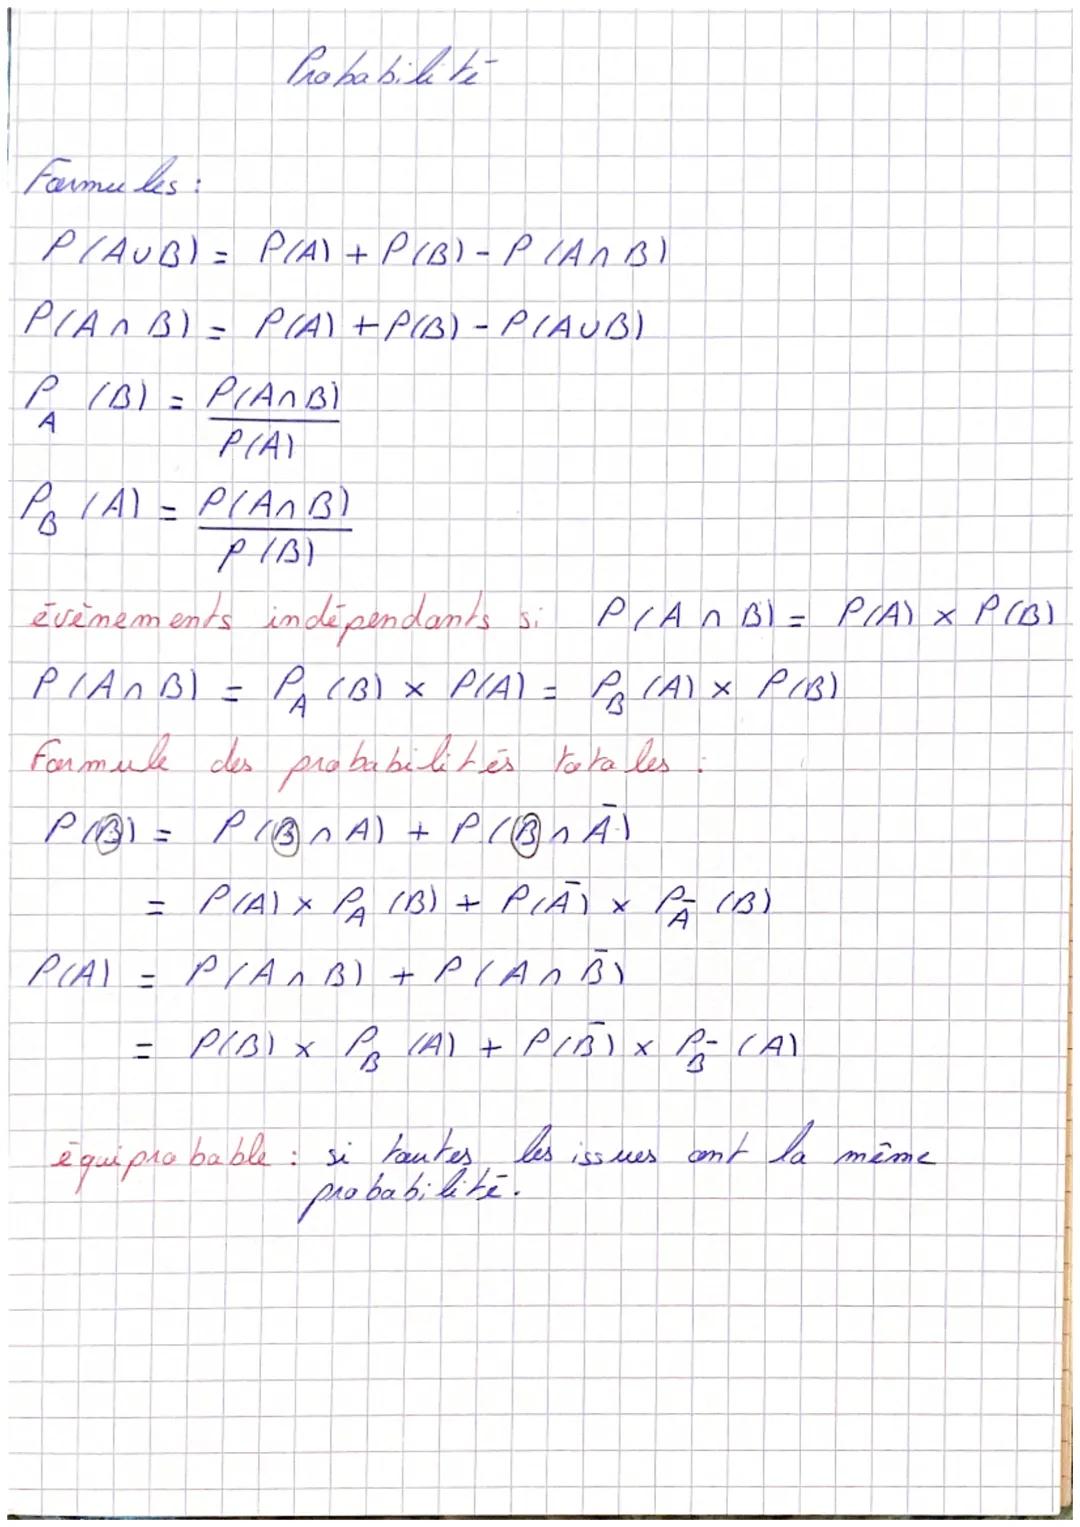 Probabilité
Formules :
P(A∪B) = P(A) + P(B) - P(A∩B)
P(A∩B) = P(A) + P(B) - P(A∪B)
P_A (B) = P(A∩B) / P(A)
P_B (A) = P(A∩B) / P(B)
évènements indépendants si P(A∩B) = P(A) × P(B)
P(A∩B) = P_A (B) × P(A) = P_B (A) × P(B)
Formule des probabilités totales :
P(B) = P(B∩A) + P(B∩Ā)
= P(A) × P_A (B) + P(Ā) × P_Ā (B)
P(A) = P(A∩B) + P(A∩B̄)
= P(B) × P_B (A) + P(B̄) × P_B̄ (A)
équiprobable : si toutes les issues ont la même
probabilité.